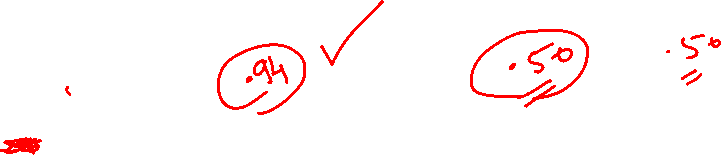 .94 .50 .50